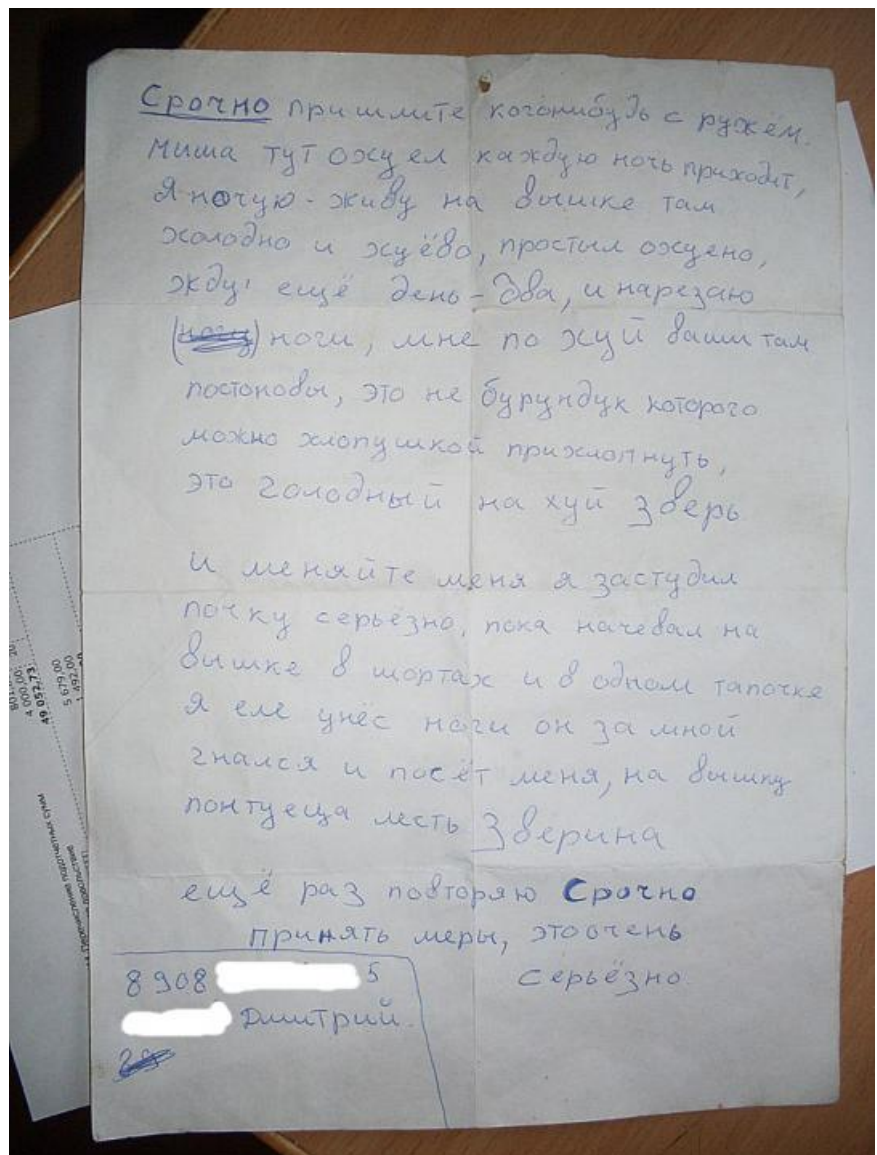 Срочно пришлите когонибудь с ружём.
Миша тут охуел каждую ночь приходит,
Я ночую - живу на вышке там
холодно и хуёво, простыл охуено,
жду ещё день - два, и нарезаю
ноги, мне по хуй ваши там
постоновы, это не бурундук которого
можно хлопушкой прихлопнуть,
это голодный на хуй зверь
и меняйте меня я застудил
почку серьёзно, пока начевал на
вышке в шортах и в одном тапочке
я еле унёс ноги он за мной
гнался и посёт меня, на вышку
понтуеца лесть Зверина
ещё раз повторяю Срочно
принять меры, это очень
серьёзно.
8908 5
Дмитрий.
801,00 20
4 000,00
49 052,73
5 679,00
1 492,00
Перечисление подотчетных сумм